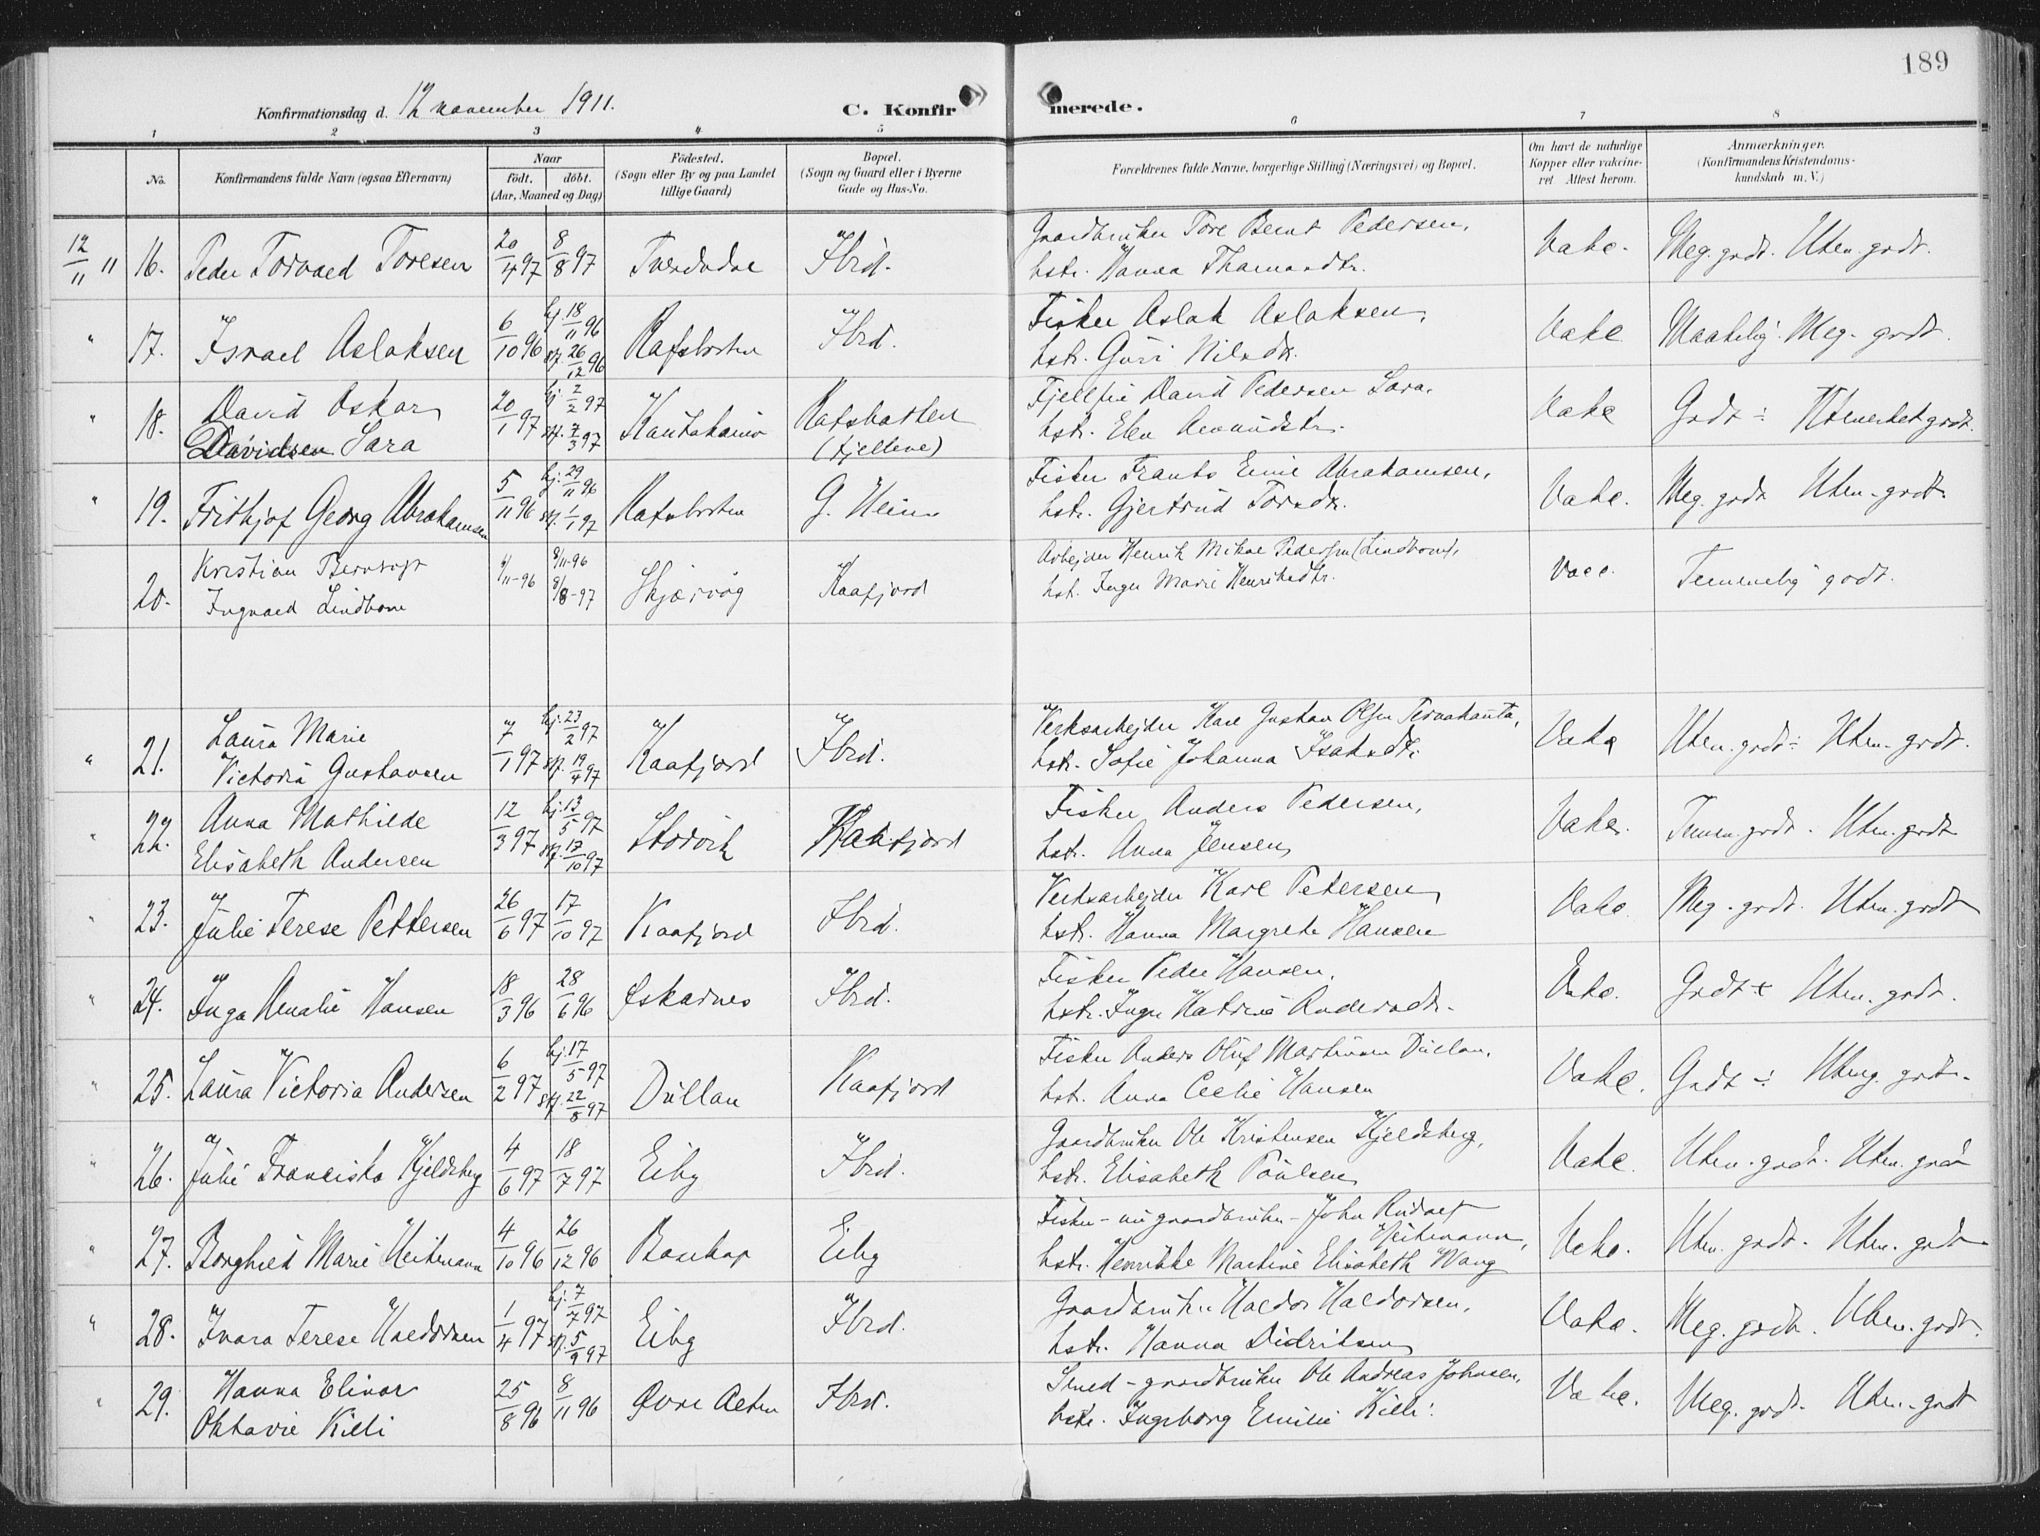 189
Konfirmationsdag d. 12 november 1911.
C. Konfirmerede.
1 2 3 4 5 6 7 8
No.
Konfirmandens fulde Navn (ogsaa Efternavn)
Naar
født. døbt.
(Aar, Maaned og Dag)
Fødested.
(Sogn eller By og paa Landet
tillige Gaard)
Bopæl.
(Sogn og Gaard eller i Byerne
Gade og Hus-No.
Forældrenes fulde Navne, borgerlige Stilling (Næringsvei) og Bopæl.
Om havt de naturlige
Kopper eller vakcine-
ret Attest herom.
Anmærkninger.
(Konfirmandens Kristendoms-
kundskab m. V.)
12/11 11 16. Peder Torvald Toresen 20/4 97 8/8 97 Tverdalv Ibid. Gaardbruker Tore Bernt Pedersen, hstr. Hanna Vakc. Meg. godt. Uten. godt.
" 17. Israel Aslaksen 6/10 96 hj. 18/11 96 stf. 26/12 96 Rafsbotten Ibid. Fisker Aslak Aslaksen, hstr. Guri Nilsdtr. Vakc Maatelig. Meg. godt.
" 18. David Oskar Davidsen Sara 20/1 97 hj. 2/2 97 stf. 7/3 97 Kautokeino Rafsbotten (fjellene) Fjellfin David Pedersen Sara, hstr. Elen Amundsdtr. Vakc Godt ÷ Utmerket godt.
" 19. Frithjof Georg Abrahamsen 5/11 96 hj. 29/11 96 stf. 1/1 97 Rafsbotten G. Heim Fisker Frants Emil Abrahamsen, hstr. Gjertrud Torsdtr. Vakc. Meg. godt Uten. godt.
20. Kristian Bernvogt Ingvald Lindbom 4/11-96 8/11-96 8/8-97 Skjærvøg Kaafjord Arbeider Henrik Mikal Pedersen (Lindbom), hst. Inger Marie Henriksdtr. Vacc. Temmelig godt.
" 21. Laura Marie Victoria Gustavsen 7/1 97 hj. 23/2 97 stf. 19/4 97 Kaafjord Ibid. Verksarbeider Karl Gustav Olsen Tervahauta, hstr. Sofie Johanna Isaksdtr. Vakc Uten. godt ÷ Uten. godt.
" 22. Anna Mathilde Elisabeth Andersen 12/3 97 hj. 13/5 97 stf. 17/10 97 Storvik Kaafjord Fisker Anders Pedersen, hstr. Anna Jensen Vakc. Temm. godt. Uten. godt
" 23. Julie Terese Pettersen 26/6 97 17/10 97 Kaafjord Ibid. Verksarbeider Karl Petersen hstr. Hanna Margrete Hansen Vakc. Meg. godt. Uten. godt
" 24. Inga Amalie Hansen 18/3 96 28/6 96 Øskarnes Ibid. Fisker Peder Hansen, hstr. Inger Katrine Andersdtr. Vakc. Godt + Uten. godt.
" 25. Laura Victoria Andersen 6/2 97 hj. 17/5 97 stf. 22/8 97 Dullan Kaafjord Fisker Anders Oluf Martinsen Dullan, hst. Anna Cecilie Hansen Vakc. Godt ÷ Uteng. godt.
" 26. Julie Franciska Kjeldsberg 4/6 97 18/7 97 Eiby Ibid. Gaardbruker Ole Kristensen Kjeldsberg, hstr. Elisabeth Paulsen Vakc. Uten. godt. Uten. godt
" 27. Borghild Marie Heitmann 4/10 96 26/12 96 Bosekop Eiby Fisker - nu gaardbruker - John Rudolf Heitmann, hstr. Henrikke Martine Elisabeth Wang Vakc. Uten. godt. Uten. godt.
" 28. Ivara Terese Haldorsen 1/4 97 hj. 7/7 97 stf. 5/9 97 Eiby Ibid. Gaardbruker Haldor Haldorsen, hstr. Hanna Didriksen Vakc. Meg. godt. Uten. godt.
" 29. Hanna Elinor Oktavie Killi 25/8 96 8/11 96 Øvre Alten Ibid. Smed - gaardbruker Ole Andreas Johnsen, hstr. Ingeborg Emilie Killi. Vakc. Meg. godt. Uten. godt